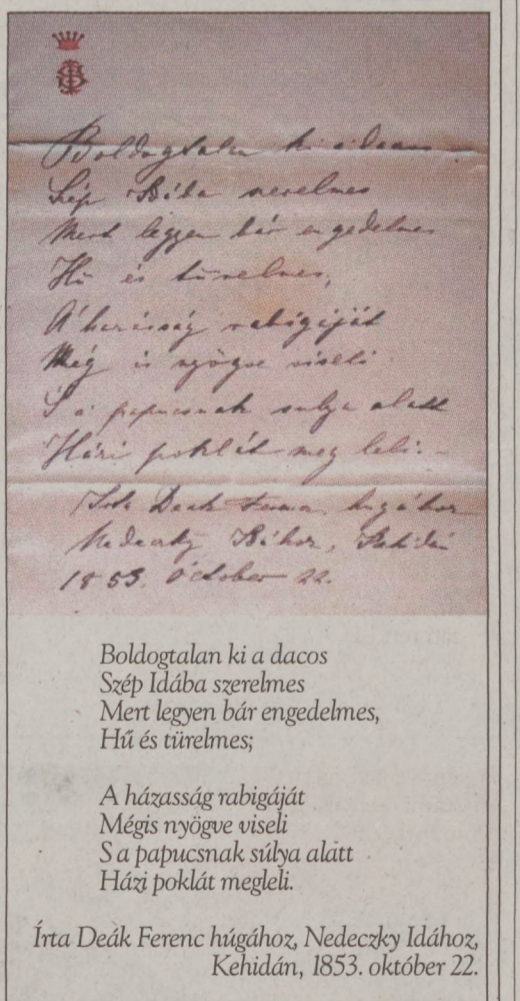 Boldogtalan ki a dacos
Szép Idába szerelmes
Mert legyen bár engedelmes
Hű és türelmes,
A házasság rabigáját
Még is nyögve viseli
S a papucsnak sulya alatt
Házi poklát meg leli.
Irta Deák Ferencz hugához
Nedeczky Idához, Kehidán
1853. October 22.
Boldogtalan ki a dacos
Szép Idába szerelmes
Mert legyen bár engedelmes,
Hű és türelmes;
A házasság rabigáját
Mégis nyögve viseli
S a papucsnak súlya alatt
Házi poklát megleli.
Írta Deák Ferenc húgához, Nedeczky Idához,
Kehidán, 1853. október 22.